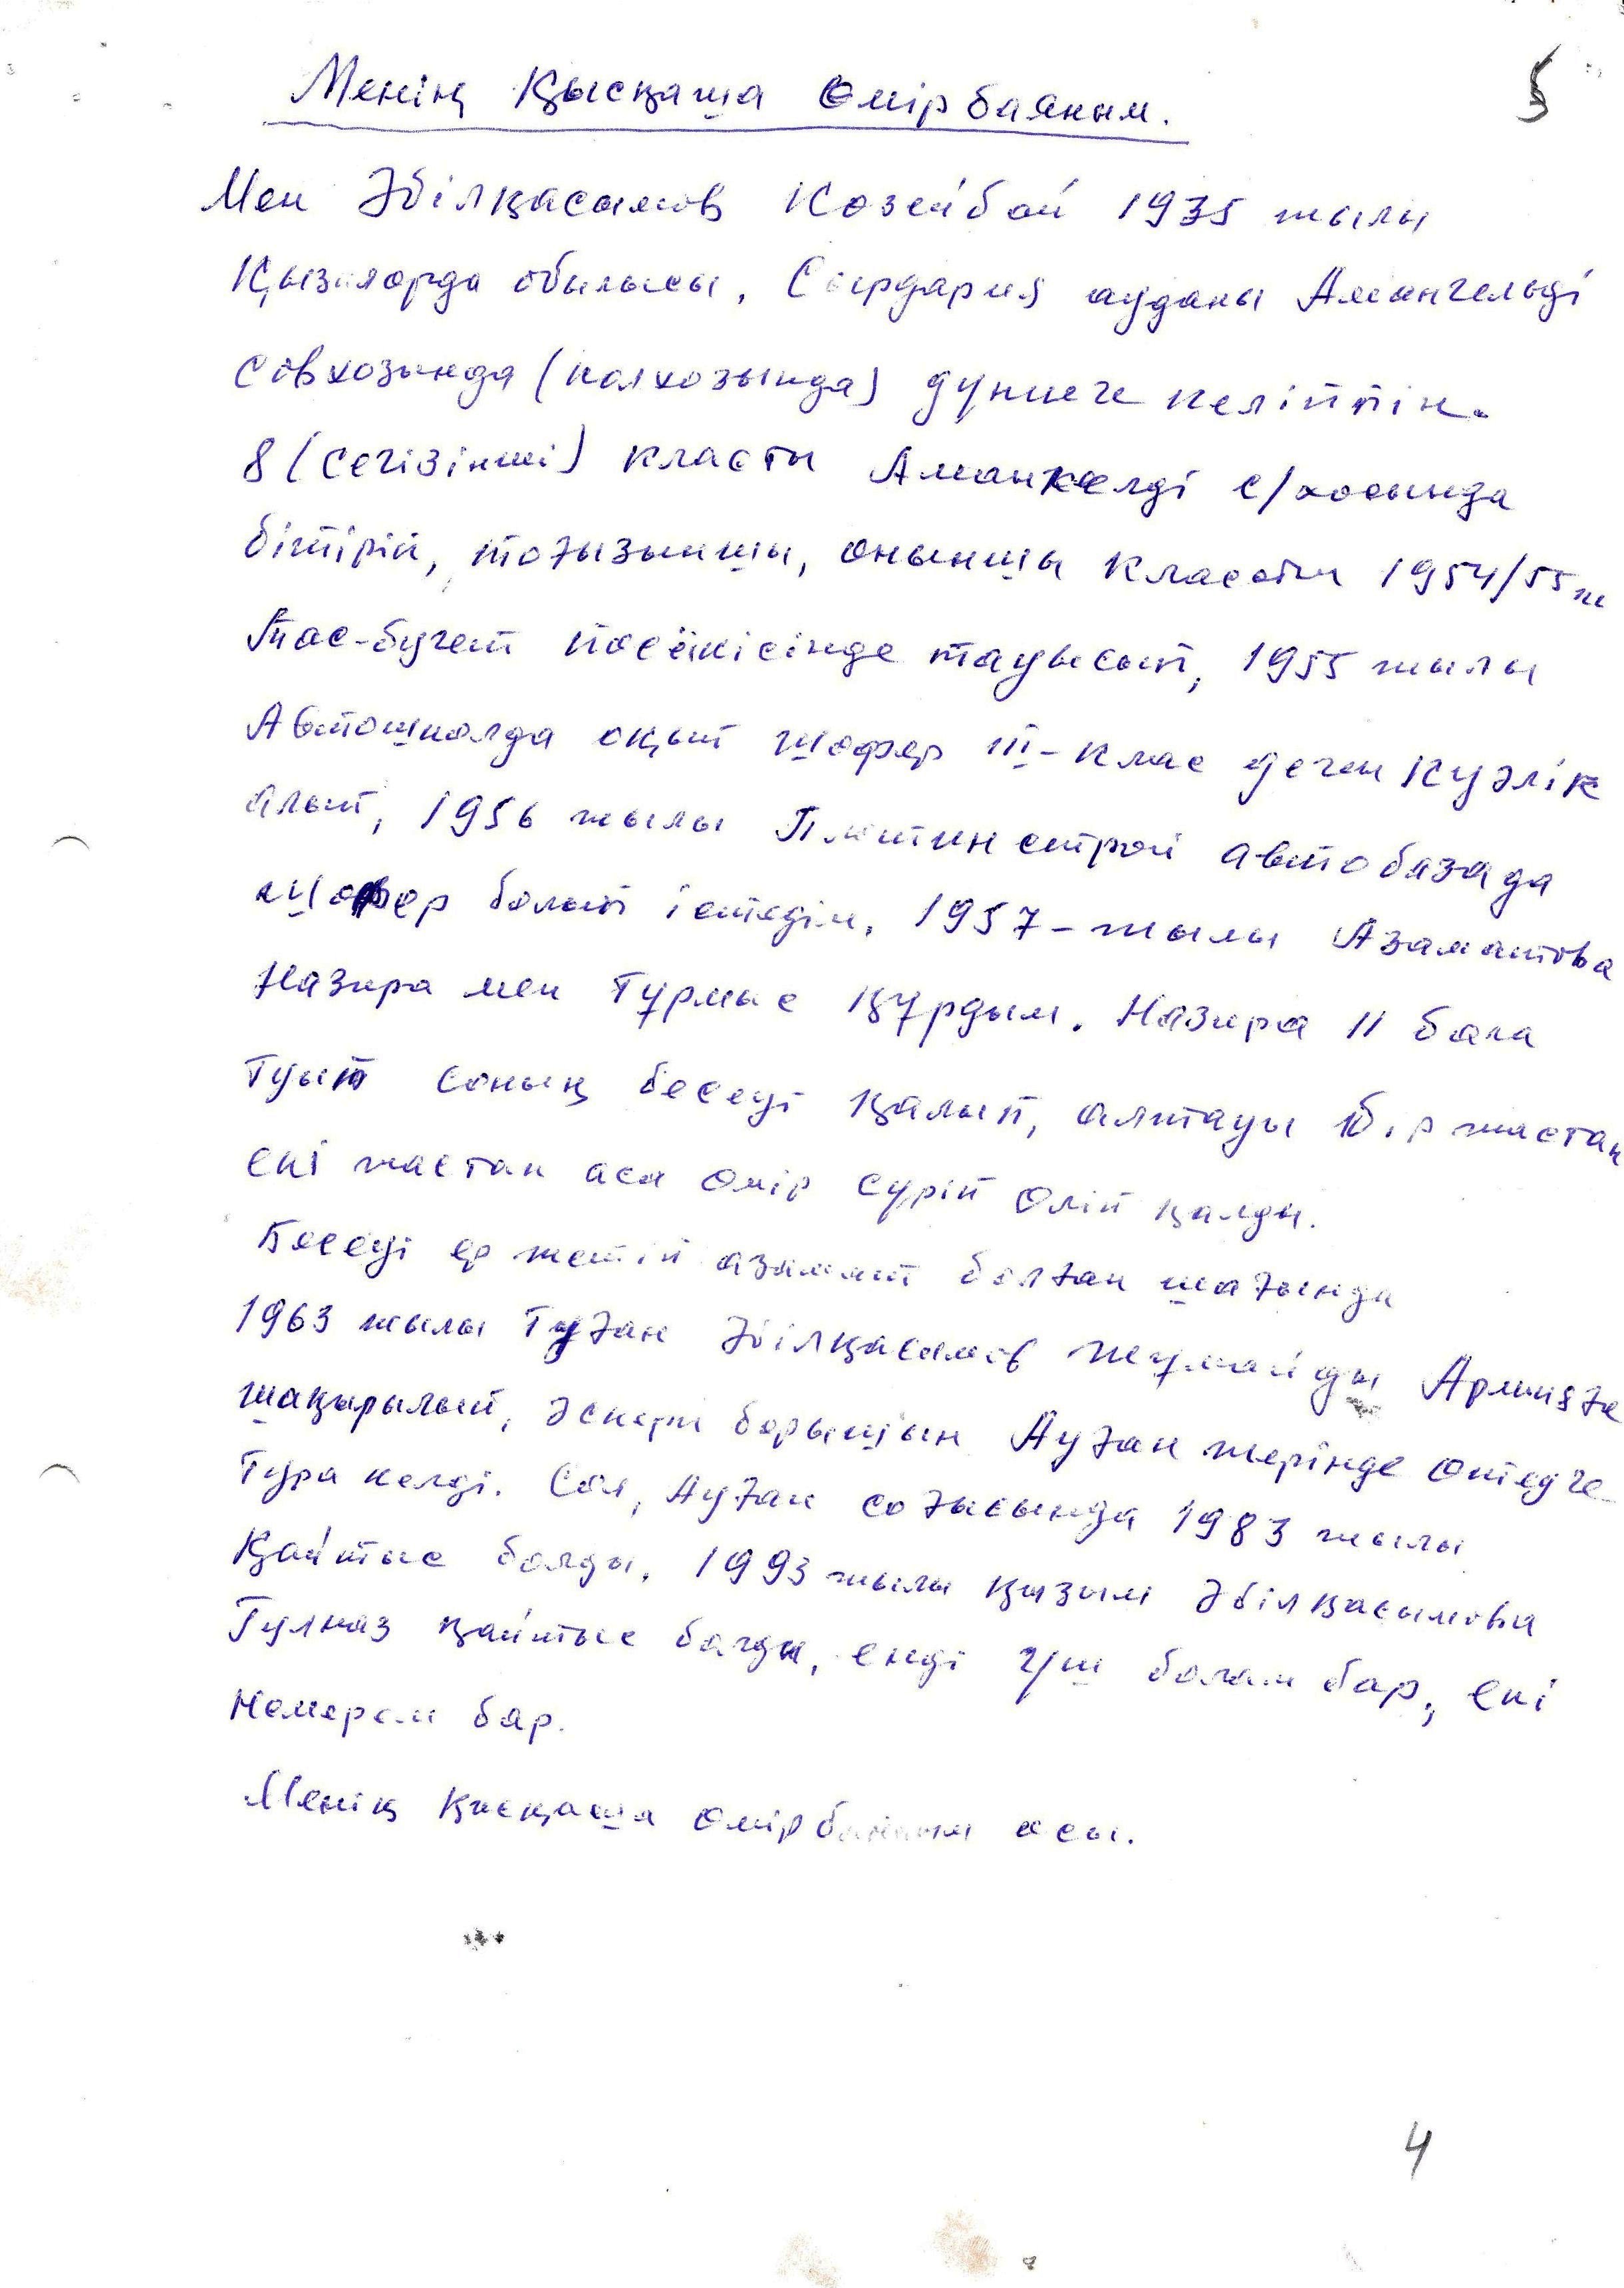 5
Менің Қысқаша Өмірбаяным.
Мен Әбілқасымов Көзейбай 1935 жылы
Қызылорда облысы, Сырдария ауданы Амангельді
совхозында (колхозында) дүниеге келіппін.
8 (сегізінші) класты Аманкелді с/хосында
бітіріп, тоғызыншы, оныншы класты 1954/55 ж
Тас-бугет посёлкісінде тауысып, 1955 жылы
Автошколда оқып шофер III-клас деген куәлік
алып, 1956 жылы Плотинстрой автобазада
шофер болып істедім. 1957-жылы Азаматова
Назира мен тұрмыс құрдым. Назира 11 бала
туып соның бесеуі қалып, алтауы бір жастан
екі жастан аса өмір сүріп өліп қалды.
Бесеуі ер жетіп азамат болған шағында
1963 жылы туған Әбілқасымов Жұмайды Армияға
шақырылып, әскери борышын Ауған жерінде өтеуге
тура келді. Сол, Ауған соғысында 1983 жылы
Қайтыс болды. 1993 жылы қызым Әбілқасымова
Гулназ қайтыс болды, енді үш балам бар, екі
немерем бар.
Менің қысқаша өмірбаяным осы.
4